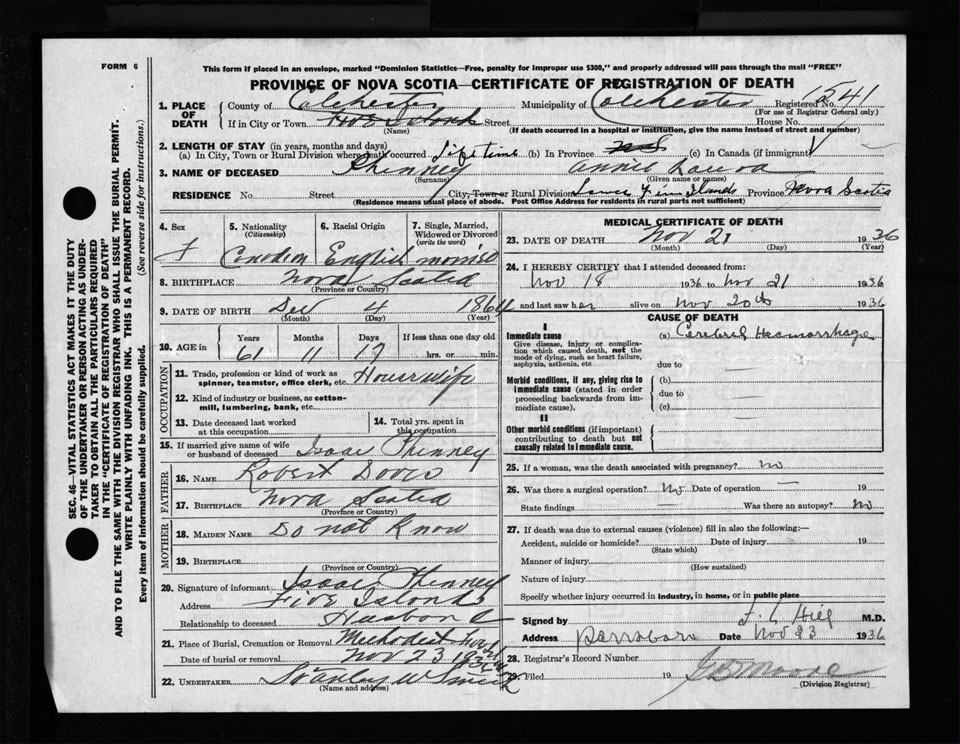 FORM 6
This form if placed in an envelope, marked "Dominion Statistics—Free, penalty for improper use $300," and properly addressed will pass through the mail "FREE"
PROVINCE OF NOVA SCOTIA—CERTIFICATE OF REGISTRATION OF DEATH
1. PLACE OF DEATH
County of Colchester Municipality of Colchester Registered No. 1541
(For use of Registrar General only)
If in City or Town Five Islands Street House No.
(Name) (If death occurred in a hospital or institution, give the name instead of street and number)
2. LENGTH OF STAY (in years, months and days)
(a) In City, Town or Rural Division where death occurred Life time (b) In Province NS (c) In Canada (if immigrant)
3. NAME OF DECEASED Phinney Annie Laura
(Surname) (Given name or names)
RESIDENCE No. Street City, Town or Rural Division Lower Five Islands Province Nova Scotia
(Residence means usual place of abode. Post Office Address for residents in rural parts not sufficient)
4. Sex F
5. Nationality (Citizenship) Canadian
6. Racial Origin English
7. Single, Married, Widowed or Divorced (write the word) married
8. BIRTHPLACE Nova Scotia
(Province or Country)
9. DATE OF BIRTH Dec 4 1864
(Month) (Day) (Year)
10. AGE in Years Months Days If less than one day old
61 11 17 hrs. or min.
OCCUPATION
11. Trade, profession or kind of work as spinner, teamster, office clerk, etc. House wife
12. Kind of industry or business, as cotton-mill, lumbering, bank, etc.
13. Date deceased last worked at this occupation
14. Total yrs. spent in this occupation
15. If married give name of wife or husband of deceased Isaac Phinney
FATHER
16. NAME Robert
17. BIRTHPLACE Nova Scotia
(Province or Country)
MOTHER
18. MAIDEN NAME Do not Know
19. BIRTHPLACE
(Province or Country)
20. Signature of informant Isaac Phinney
Address Five Islands
Relationship to deceased Husband
21. Place of Burial, Cremation or Removal Methodist
Date of burial or removal Nov 23 1936
22. UNDERTAKER Stanley W
(Name and address)
MEDICAL CERTIFICATE OF DEATH
23. DATE OF DEATH Nov 21 1936
(Month) (Day) (Year)
24. I HEREBY CERTIFY that I attended deceased from:
Nov 18 1936 to Nov 21 1936
and last saw her alive on Nov 20th 1936
CAUSE OF DEATH
I
Immediate cause (a) Cerebral Haemorrhage
Give disease, injury or complication which caused death, not the mode of dying, such as heart failure, asphyxia, asthenia, etc
due to
Morbid conditions, if any, giving rise to immediate cause (stated in order proceeding backwards from immediate cause).
(b)
due to
(c)
II
Other morbid conditions (if important) contributing to death but not causally related to immediate cause.
25. If a woman, was the death associated with pregnancy? no
26. Was there a surgical operation? No Date of operation — 19
State findings — Was there an autopsy? No
27. If death was due to external causes (violence) fill in also the following:—
Accident, suicide or homicide? Date of injury 19
(State which)
Manner of injury
(How sustained)
Nature of injury
Specify whether injury occurred in industry, in home, or in public place
Signed by M.D.
Address Parrsboro Date Nov 23 1936
28. Registrar's Record Number
29. Filed 19 Moore
(Division Registrar)
SEC. 46—VITAL STATISTICS ACT MAKES IT THE DUTY
OF THE UNDERTAKER OR PERSON ACTING AS UNDER-
TAKER TO OBTAIN ALL THE PARTICULARS REQUIRED
IN THE "CERTIFICATE OF REGISTRATION OF DEATH"
AND TO FILE THE SAME WITH THE DIVISION REGISTRAR WHO SHALL ISSUE THE BURIAL PERMIT.
WRITE PLAINLY WITH UNFADING INK. THIS IS A PERMANENT RECORD.
Every item of information should be carefully supplied. (See reverse side for instructions.)